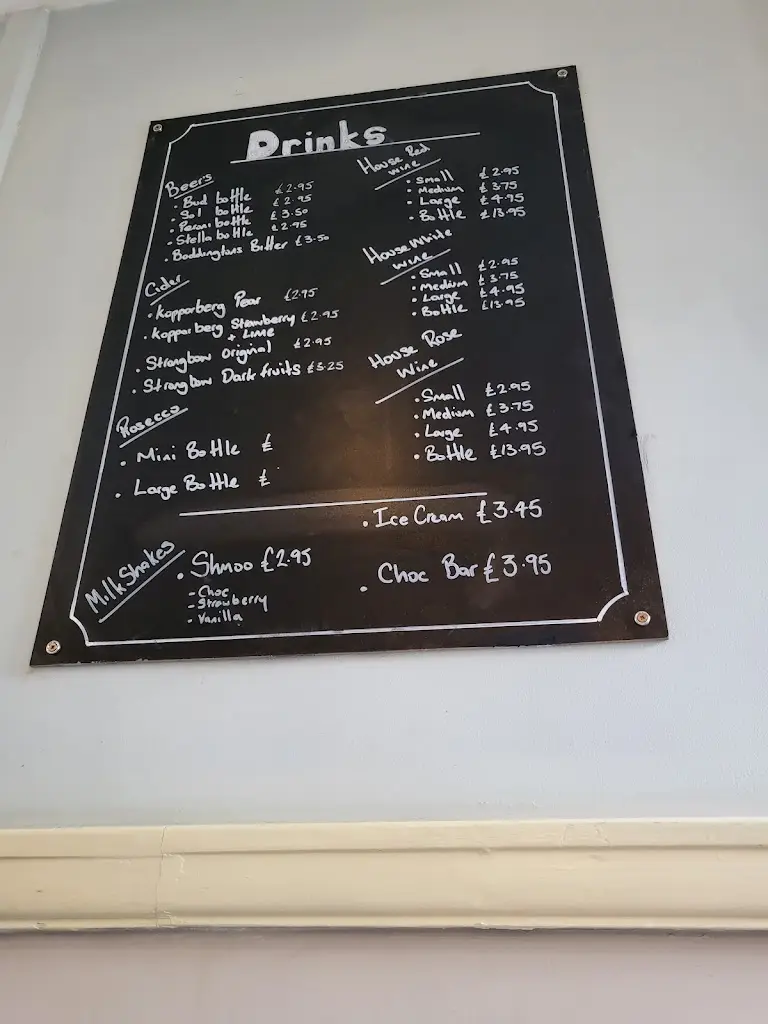 Drinks
Beers
• Bud bottle £2.95
• Sol bottle £2.95
• Peroni bottle £3.50
• Stella bottle £2.95
• Boddingtons Bitter £3.50
Cider
• Kopparberg Pear £2.95
• Kopparberg Strawberry £2.95
+ Lime
• Strongbow Original £2.95
• Strongbow Dark fruits £3.25
Prosecco
• Mini Bottle £
• Large Bottle £
House Red
wine
• Small £2.95
• Medium £3.75
• Large £4.95
• Bottle £13.95
House White
wine
• Small £2.95
• Medium £3.75
• Large £4.95
• Bottle £13.95
House Rose
Wine
• Small £2.95
• Medium £3.75
• Large £4.95
• Bottle £13.95
MilkShakes
• Shmoo £2.95
- Choc
- Strawberry
- Vanilla
• Ice Cream £3.45
• Choc Bar £3.95